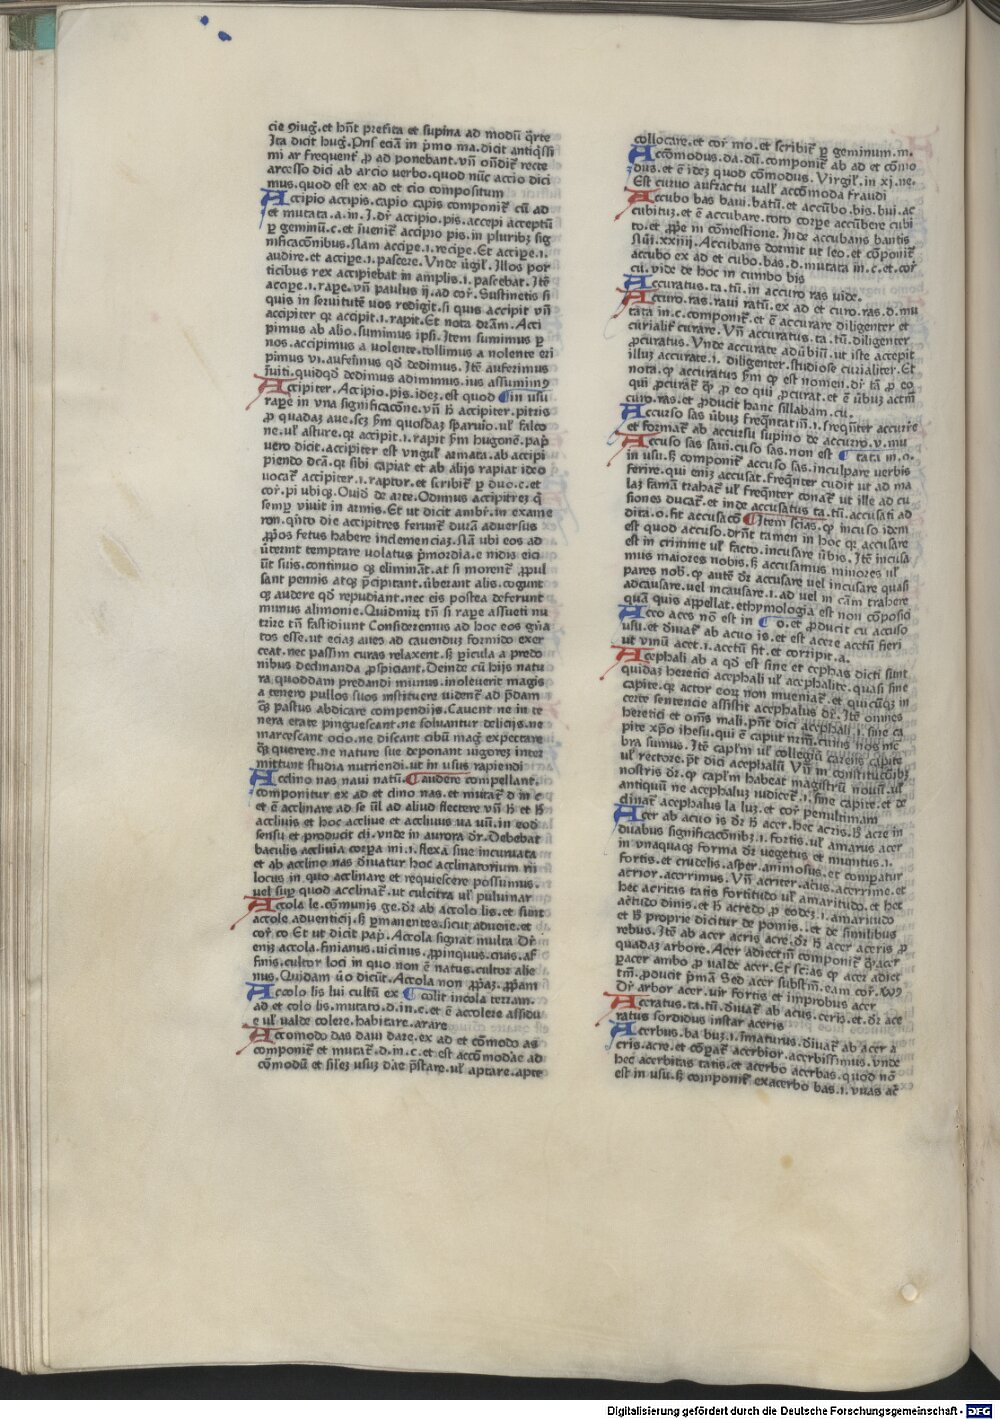 cie ꝯiug̃. et hñt p̃terita et supina ad modũ q̃rte
Ita dicit hug̃. Pris̃ eciã in p̃mo ma. dicit antiq̃ssi
mi ar frequent̃ ꝓ ad ponebant. vñ oñdit̃ recte
arcesso dici ab arcio uerbo. quod nũc accio dici
mus. quod est ex ad et cio compositum
Accipio accipis. capio capis componit̃ cũ ad
et mutata .a. in .i. dr̃ accipio .pis. accepi acceptũ
ꝑ geminũ .c. et iuenit̃ accipio pis in pluribꝫ sig
nificac̃onibus. Nam accipe .i. recipe. Et accipe .i.
audire. et accipe .i. pascere. Vnde ũgil̃. Illos por
ticibus rex accipiebat in amplis .i. pascebat. Itẽ
accipe .i. rape. vñ paulus ij. ad cor̃. Sustinetis si
quis in seruitutẽ uos redigit. si quis accipit vñ
accipiter qꝛ accipit .i. rapit. Et nota dr̃am. Acci
pimus ab alio. sumimus ipsi. Item sumimus ꝑ
nos. accipimus a uolente. tollimus a nolente eri
pimus vi. auferimus qd̃ dedimus. Itẽ auferimus
ĩuiti. quidqd̃ dedimus adimimus. ius assumimꝯ
Accipiter. Accipio .pis. idẽ est quod ¶ in usu
rape in vna significac̃one. vñ h̃ accipiter .pitris
ꝓ quadaꝫ aue. scꝫ s̃m quosdaꝫ sparuio. ul̃ falco
ne. ul̃ asture. qꝛ accipit .i. rapit s̃m hugonẽ. pap̃
uero dicit. accipiter est vngul̃ armata. ab accipi
piendo dc̃a. qꝛ sibi capiat et ab alijs rapiat ideo
uocat̃ accipiter .i. raptor. et scribit̃ ꝑ duo .c. et
cor̃. pi ubiqꝫ. Ouid̃ de arte. Odimus accipitreꝫ q̃
semꝑ viuit in armis. Et ut dicit ambr̃. in exame
ron. qñto die accipitres ferunt̃ durã aduersus
ꝓp̃os fetus habere inclemenciaꝫ. Nã ubi eos ad
ũterint temptare uolatus p̃mordia. e nidis eici
ũt suis. continuo qꝫ eliminãt. at si morent̃ ꝓpul
sant pennis atqꝫ p̃cipitant. ũberant alis. cogunt
qꝫ audere qd̃ repudiant. nec eis postea deferunt
munus alimonie. Quidmirꝫ tñ si rape assueti nu
trire tñ fastidiunt Consideremus ad hoc eos gñã
tos esse. ut eciaꝫ aues ad cauendus formido exer
ceat. nec passim curas relaxent. sꝫ ꝑicula a predo
nibus declinanda ꝓspiciant. Deinde cũ hijs natu
ra quoddam predandi munus. inoleuerit magis
a tenero pullos suos instituere uident̃ ad p̃dam
q̃ꝫ pastus abdicare compendijs. Cauent ne in te
nera etate pinguescant. ne soluantur delicijs. ne
marcescant ocio. ne discant cibũ mag̃ expectare
q̃ꝫ querere. ne nature sue deponant uigoreꝫ inter
mittunt studia nutriendi. ut in usus rapiendi
Acclino nas naui natũ. ¶ audere compellant.
componitur ex ad et clino nas. et mutat̃ d in c
et ẽ acclinare ad se ul̃ ad aliud flectere vñ h̃ et h̃
accliuis et hoc accliue et accliuus ua uũ. in eod̃
sensu et producit cli. vnde in aurora dr̃. Debebat
baculis accliuia corp̃a mi .i. flexa siue incuruata
et ab acclino nas diuatur hoc acclinatorium rii
locus in quo acclinare et requiescere possumus.
uel suꝑ quod acclinat̃. ut culcitra ul̃ puluinar
Accola le. cõmunis ge. dr̃ ab accolo lis. et sunt
accole aduenticij. sꝫ ꝑmanentes. sicut aduene. et
cor̃ co Et ut dicit pap̃. Accola signat multa Dr̃
enĩ accola. finianus. uicinus. ꝓpinquus. ciuis. af
finis. cultor loci in quo non ẽ natus. cultor alie
nus. Quidam ũo dicũt. Accola non ꝓp̃aꝫ. ꝓp̃am
Accolo lis lui cultũ ex ¶ colit incola terram.
ad et colo lis. mutato .d. in .c. et ẽ accolere assidu
e ul̃ ualde colere. habitare. arare
Accomodo das daui dare. ex ad et cõmodo as
componit̃ et mutat̃ .d. in .c. et est accõmodãe ad
cõmodũ et similẽ usuꝫ dãe p̃stare. ul̃ aptare. apte
collocare. et cor̃ mo. et scribit̃ ꝑ geminum .m.
Accõmodus .da. dũ. componit̃ ab ad et cõmo
dus. et ẽ ideꝫ quod cõmodus. Virgil̃. in xj. ne.
Est curuo anfractu uall̃ accõmoda fraudi
Accubo bas baui. batũ. et accũbo .bis. bui. ac
cubituꝫ. et ẽ accubare. toto corꝑe accũbere cubi
to. et ꝓp̃e in cõmestione. Inde accubans bantis
Nũi. xxiiij. Accubans dormit ut leo. et cõponit̃
accubo ex ad et cubo .bas .d. mutata in .c. et cor̃
cu. vide de hoc in cumbo bis
Accuratus .ta. tũ. in accuro ras vide.
Accuro .ras. raui ratũ. ex ad et curo .ras. d. mu
tata in .c. componit̃. et ẽ accurare diligenter et
curialit̃ curare. Vñ accuratus .ta. tũ. diligenter
ꝓcuratus. Vnde accurate adũbiũ. ut iste accepit
illuꝫ accurate .i. diligenter. studiose curialiter. Et
nota. qꝫ accuratus s̃m qꝫ est nomen. dr̃ tã ꝓ eo
qui ꝓcurat̃ q̃ꝫ ꝓ eo qui ꝓcurat. et ẽ ũbuꝫ actiũ
curo .ras. et producit hanc sillabam .cu.
Accurso sas ũbuꝫ freq̃ntatiũ .i. freq̃nter accur̃e
et format̃ ab accursu supino de accurro .v. mu
Accuso sas saui. cuso sas. non est ¶ tata in .o.
in usu. sꝫ componit̃ accuso sas. inculpare uerbis
ferire. qui enĩ accusat. freq̃nter cudit ut ad ma
laꝫ famã trahat̃ ul̃ freq̃nter conat̃ ut ille ad cu
siones ducat̃. et inde accusatus ta. tũ. accusati ad
dita .o. fit accusac̃o ¶ Item scias. qꝫ incuso idem
est quod accuso. drñt tamen in hoc qꝛ accusare
est in crimine ul̃ facto. incusare ũbis. Itẽ incusa
mus maiores nobis. sꝫ accusamus minores ul̃
pares nob̃. qꝫ autẽ dr̃ accusare uel incusare quasi
adcausare. uel incausare .i. ad uel in cãm trahere
quã quis appellat. ethymologia est non cõposicio
Aceo aces nõ est in ¶ o. et ꝓducit cu accuso
usu. et diuat̃ ab acuo is. et est acere acetũ fieri
ut vinũ acet .i. acetũ fit. et corripit .a.
Acephali ab a qd̃ est sine et cephas dicti sunt
quidaꝫ heretici acephali ul̃ acephalite. quasi sine
capite. qꝛ actor eoꝝ non inueniat̃. et quicũqꝫ in
certe sentencie assistit acephalus dr̃. Itẽ omnes
heretici et om̃s mali. pñt dici acephali .i. sine ca
pite xp̃o ihesu. qui ẽ caput nr̃m. cuius nos me
bra sumus. Itẽ caplm̃ ul̃ collegiũ carens capite
ul̃ rectore. põt dici acephalũ Vñ in constitucõibꝫ
nostris dr̃. qꝫ caplm̃ habeat magistrũ nouũ. ul̃
antiquũ ne acephaluꝫ iudicet̃ .i. sine capite. et de
clinat̃ acephalus la luꝫ. et cor̃ penultimam
Acer ab acuo is dr̃ h̃ acer. hec acris. h̃ acre in
duabus significac̃onibꝫ .i. fortis. ul̃ amarus acer
in vnaquaqꝫ forma dr̃ uegetus et munitus .i.
fortis. et crudelis. asper. animosus. et compatur
acrior. acerrimus. Vñ acriter. acius. acerrime. et
hec acritas tatis fortitudo ul̃ amaritudo. et hec
ac̃tudo dinis. et h̃ acredo ꝓ eodeꝫ .i. amaritudo
et h̃ proprie dicitur de pomis .. et de similibus
rebus. Itẽ ab acer acris acre. dr̃ h̃ acer aceris ꝓ
quadaꝫ arbore. Acer adiectiũ componit̃ q̃ꝫacer
ꝑacer ambo ꝓ ualde acer. Et sc̃ias qꝫ acer adiec
tiũ. ꝓducit p̃mã Sed acer substm̃. eam cor̃. Vꝫ
Dr̃ arbor acer. uir fortis et improbus acer
Aceratus .ta. tũ. diuat̃ ab acus .ceris. et dr̃ ace
ratus sordidus instar aceris
Acerbus .ba buꝫ .i. ĩmaturus. diuat̃ ab acer a
cris. acre. et cõpat̃ acerbior. acerbissimus. vnde
hec acerbitas tatis. et acerbo acerbas. quod nõ
est in usu. sꝫ componit̃ exacerbo bas .i. vuas ac̃

Digitalisierung gefördert durch die Deutsche Forschungsgemeinschaft - DFG